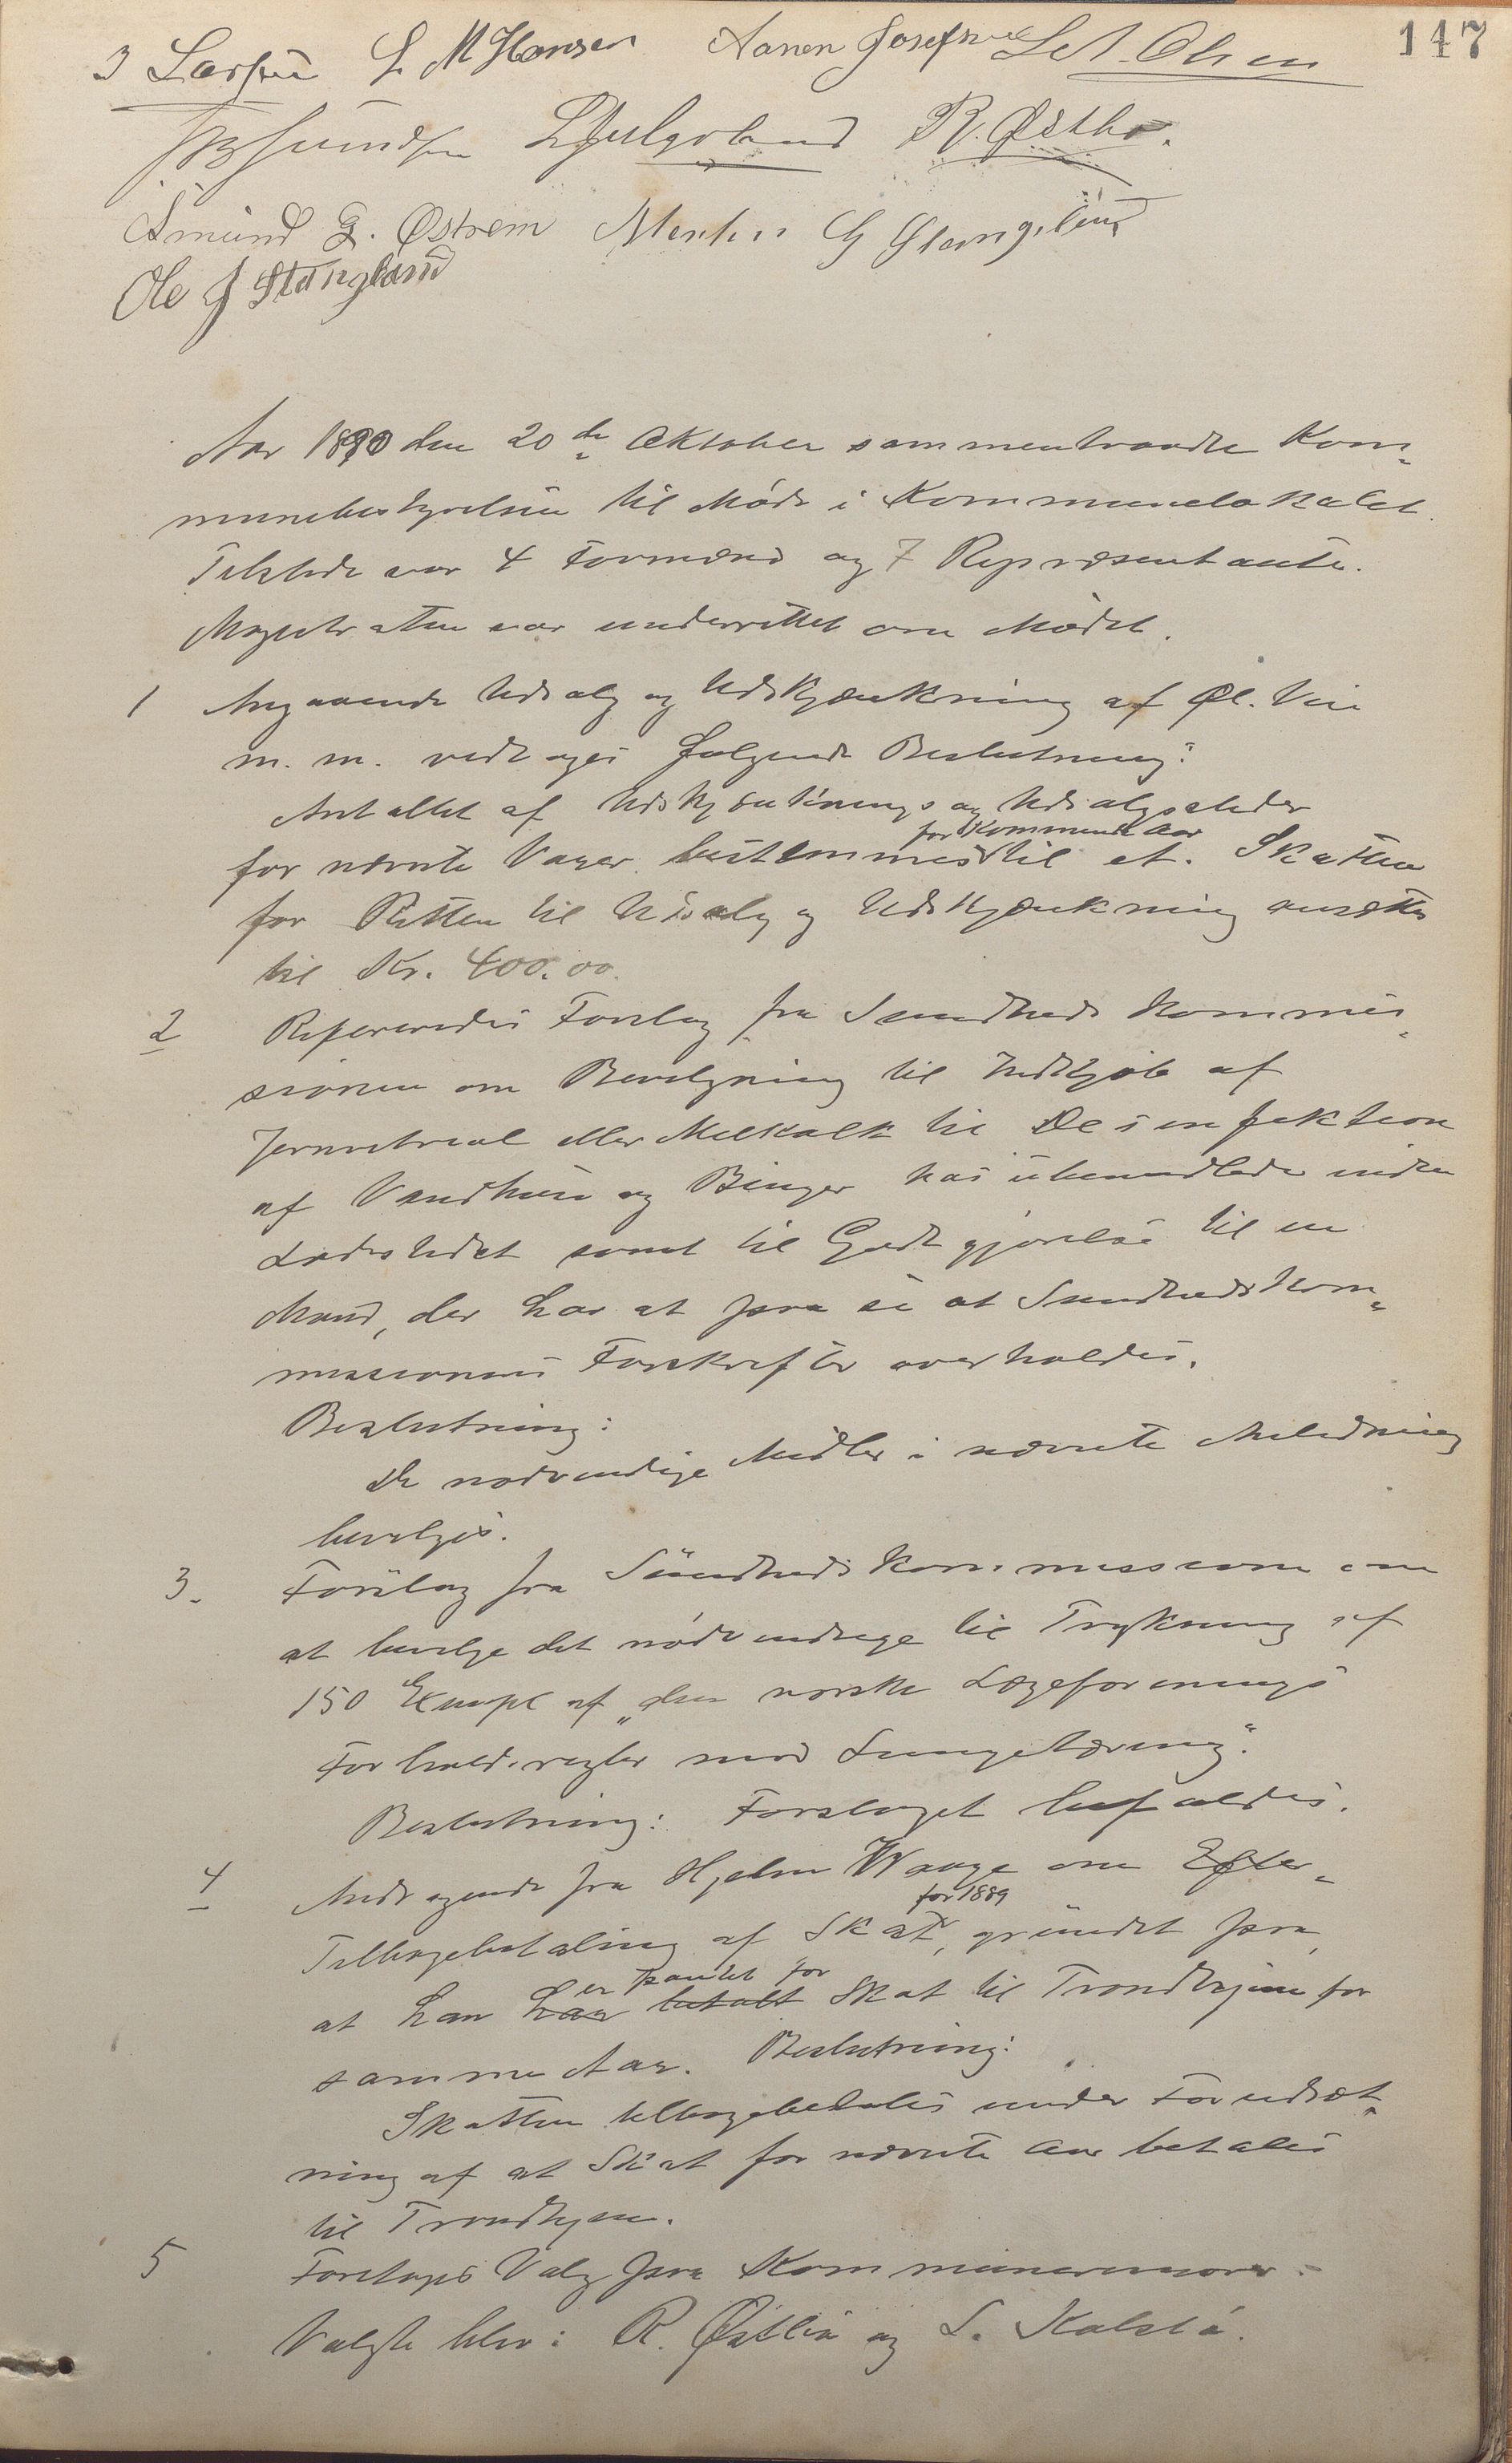 147
J Larsen L M Hansen Aanen Josefsen L A. Olsen
R. Østbø.
Amund G. Østrem Martin G Stangeland
Ole J Stangland
Aar 1890 den 20de Oktober sammentraadte Kom-
munebestyrelsen til Møde i Kommunelokalet.
Tilstede var 4 Formænd og 7 Repræsentanter.
Magistraten var underrettet om Mødet.
1 Angaaende Udsalg og Udskjænkning af Øl. Vin
m. m. vedtages følgende Beslutning:
Antallet af Udskjænknings og Udsalgssteder
for kommende Aar
for nævnte Varer bestemmes til et. Skatten
for Retten til Udsalg og Udskjænkning ansættes
til Kr. 400.00.
2 Refereredes Forslag fra Sundheds Kommis-
sionen om Bevilgning til Indkjøb af
Jernvitriol eller Melkalk til Desinfektion
af Vandhuse og Binger hos ubemidlede inden
Ladestedet samt til Godtgjørelse til en
Mand, der har at paase at Sundhedskom-
missionens Forskrifter overholdes.
Beslutning:
De nødvendige Midler i nævnte Anledning
bevilges.
3. Forslag fra Sundheds Kommissionen om
at bevilge det nødvendige til Trykning af
150 Exempl af „den norske Lægeforenings
Forholdsregler mod Lungetæring“.
Beslutning: Forslaget bifaldes.
4 Andragende fra Hjalm Waage om Efter-
for 1889
Tilbagebetaling af Skat, grundet paa,
er pantet for
at han har betalt Skat til Trondhjem for
samme Aar. Beslutning:
Skatten tilbagebetales under Forudsæt-
ning af at Skat for nævnte Aar betales
til Trondhjem.
5 Foretages Valg paa Kommunerevisorer.
Valgte blev: R. Østbø og L. Kalstø.